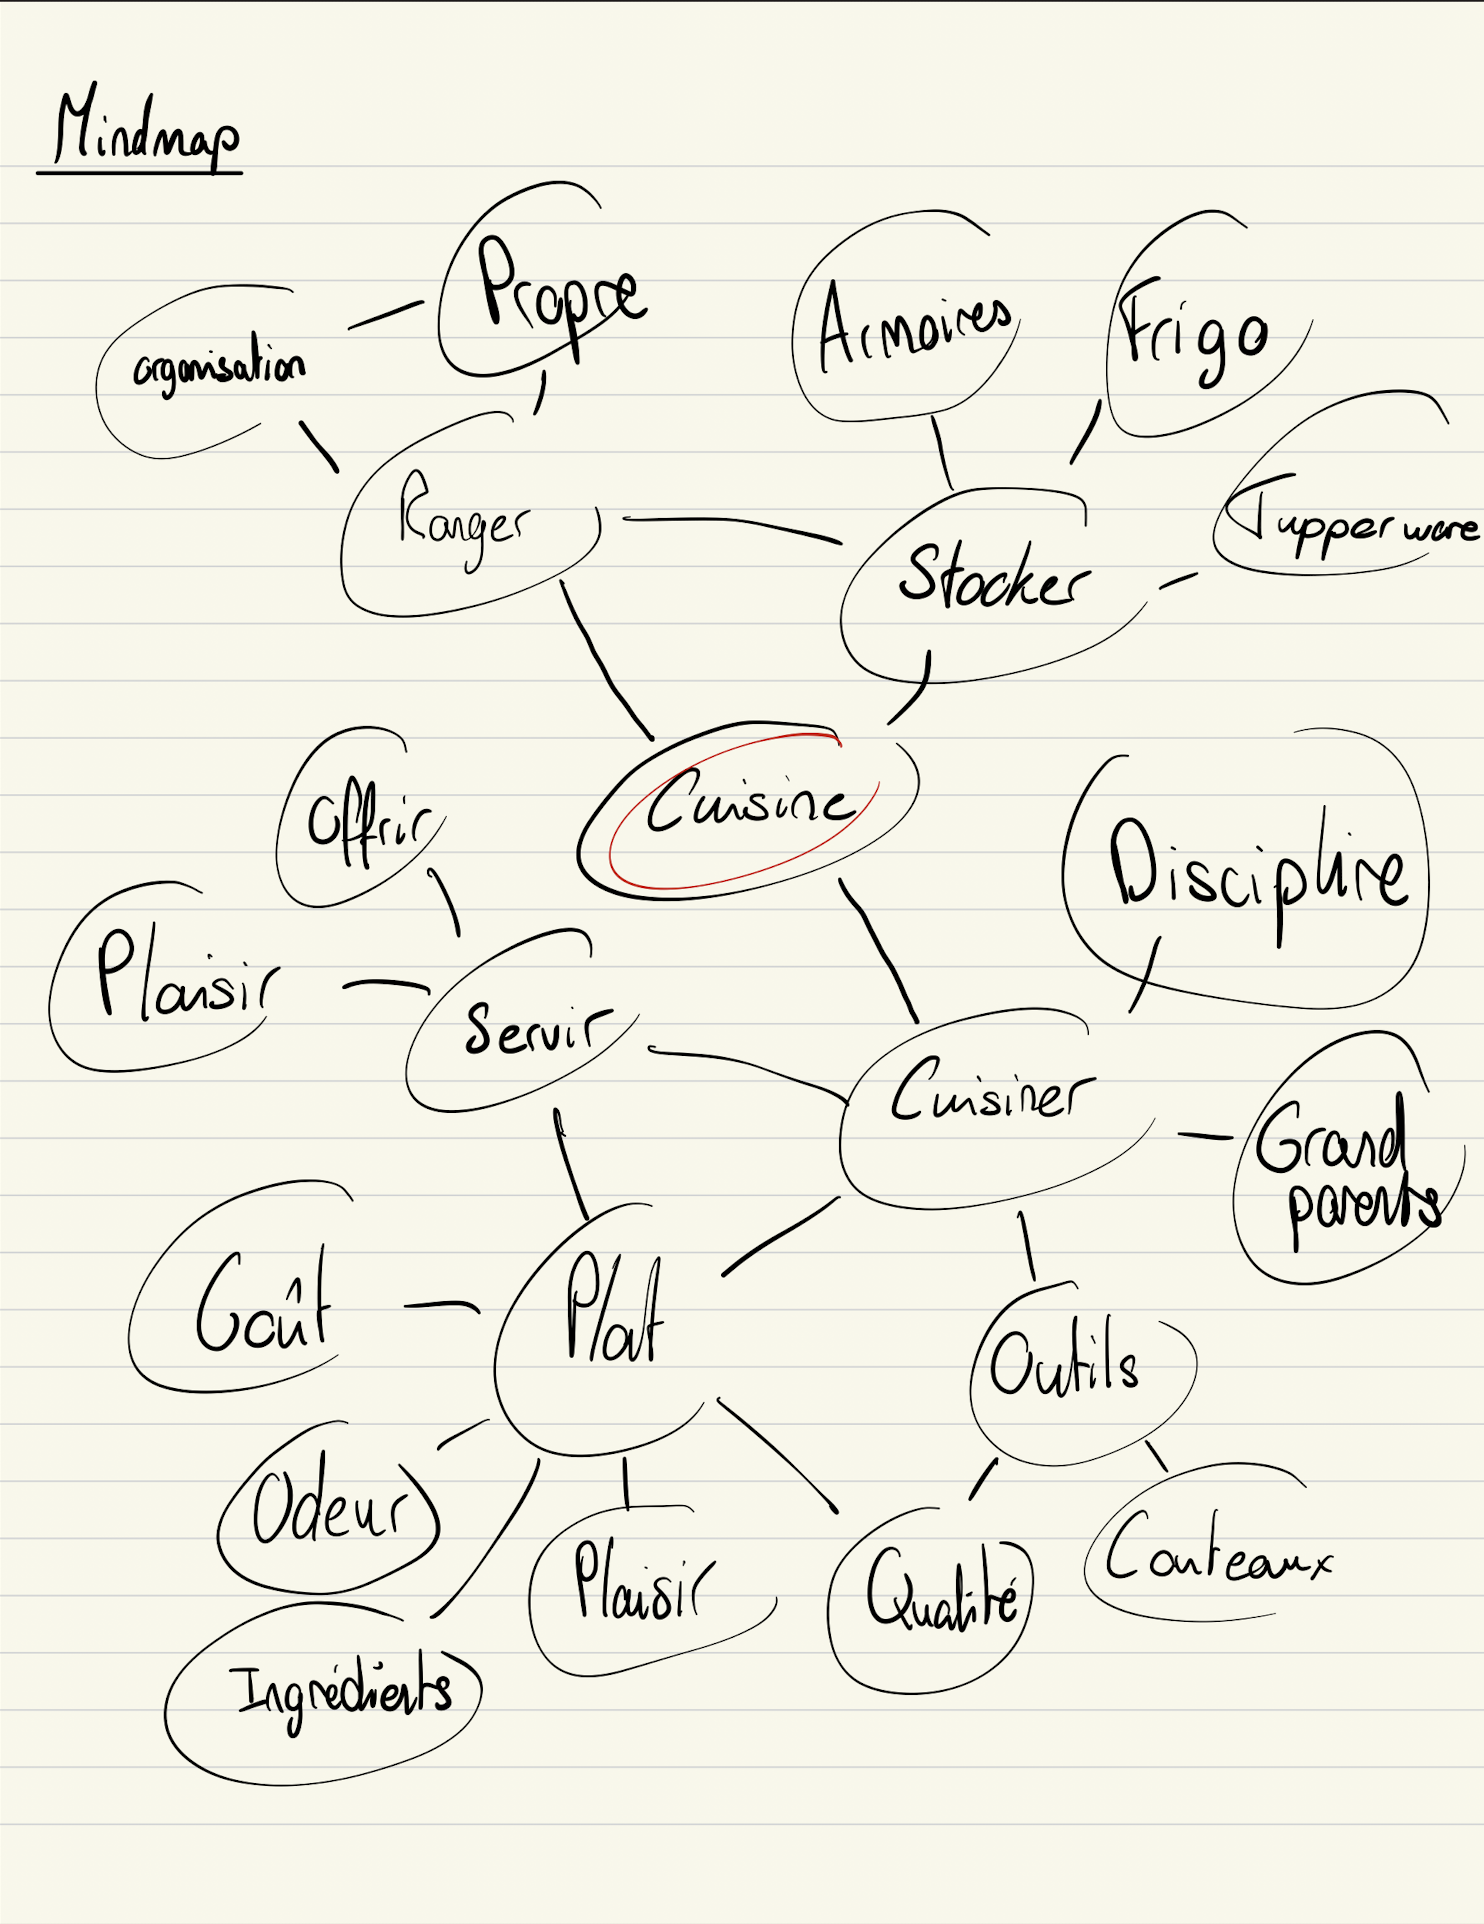 Mindmap
Propre
Armoires
Frigo
organisation
Ranger
Tupperware
Stocker
Offrir
Cuisine
Discipline
Plaisir
Servir
Cuisiner
Grand
parents
Goût
Plat
Outils
Odeur
Plaisir
Qualité
Couteaux
Ingrédients